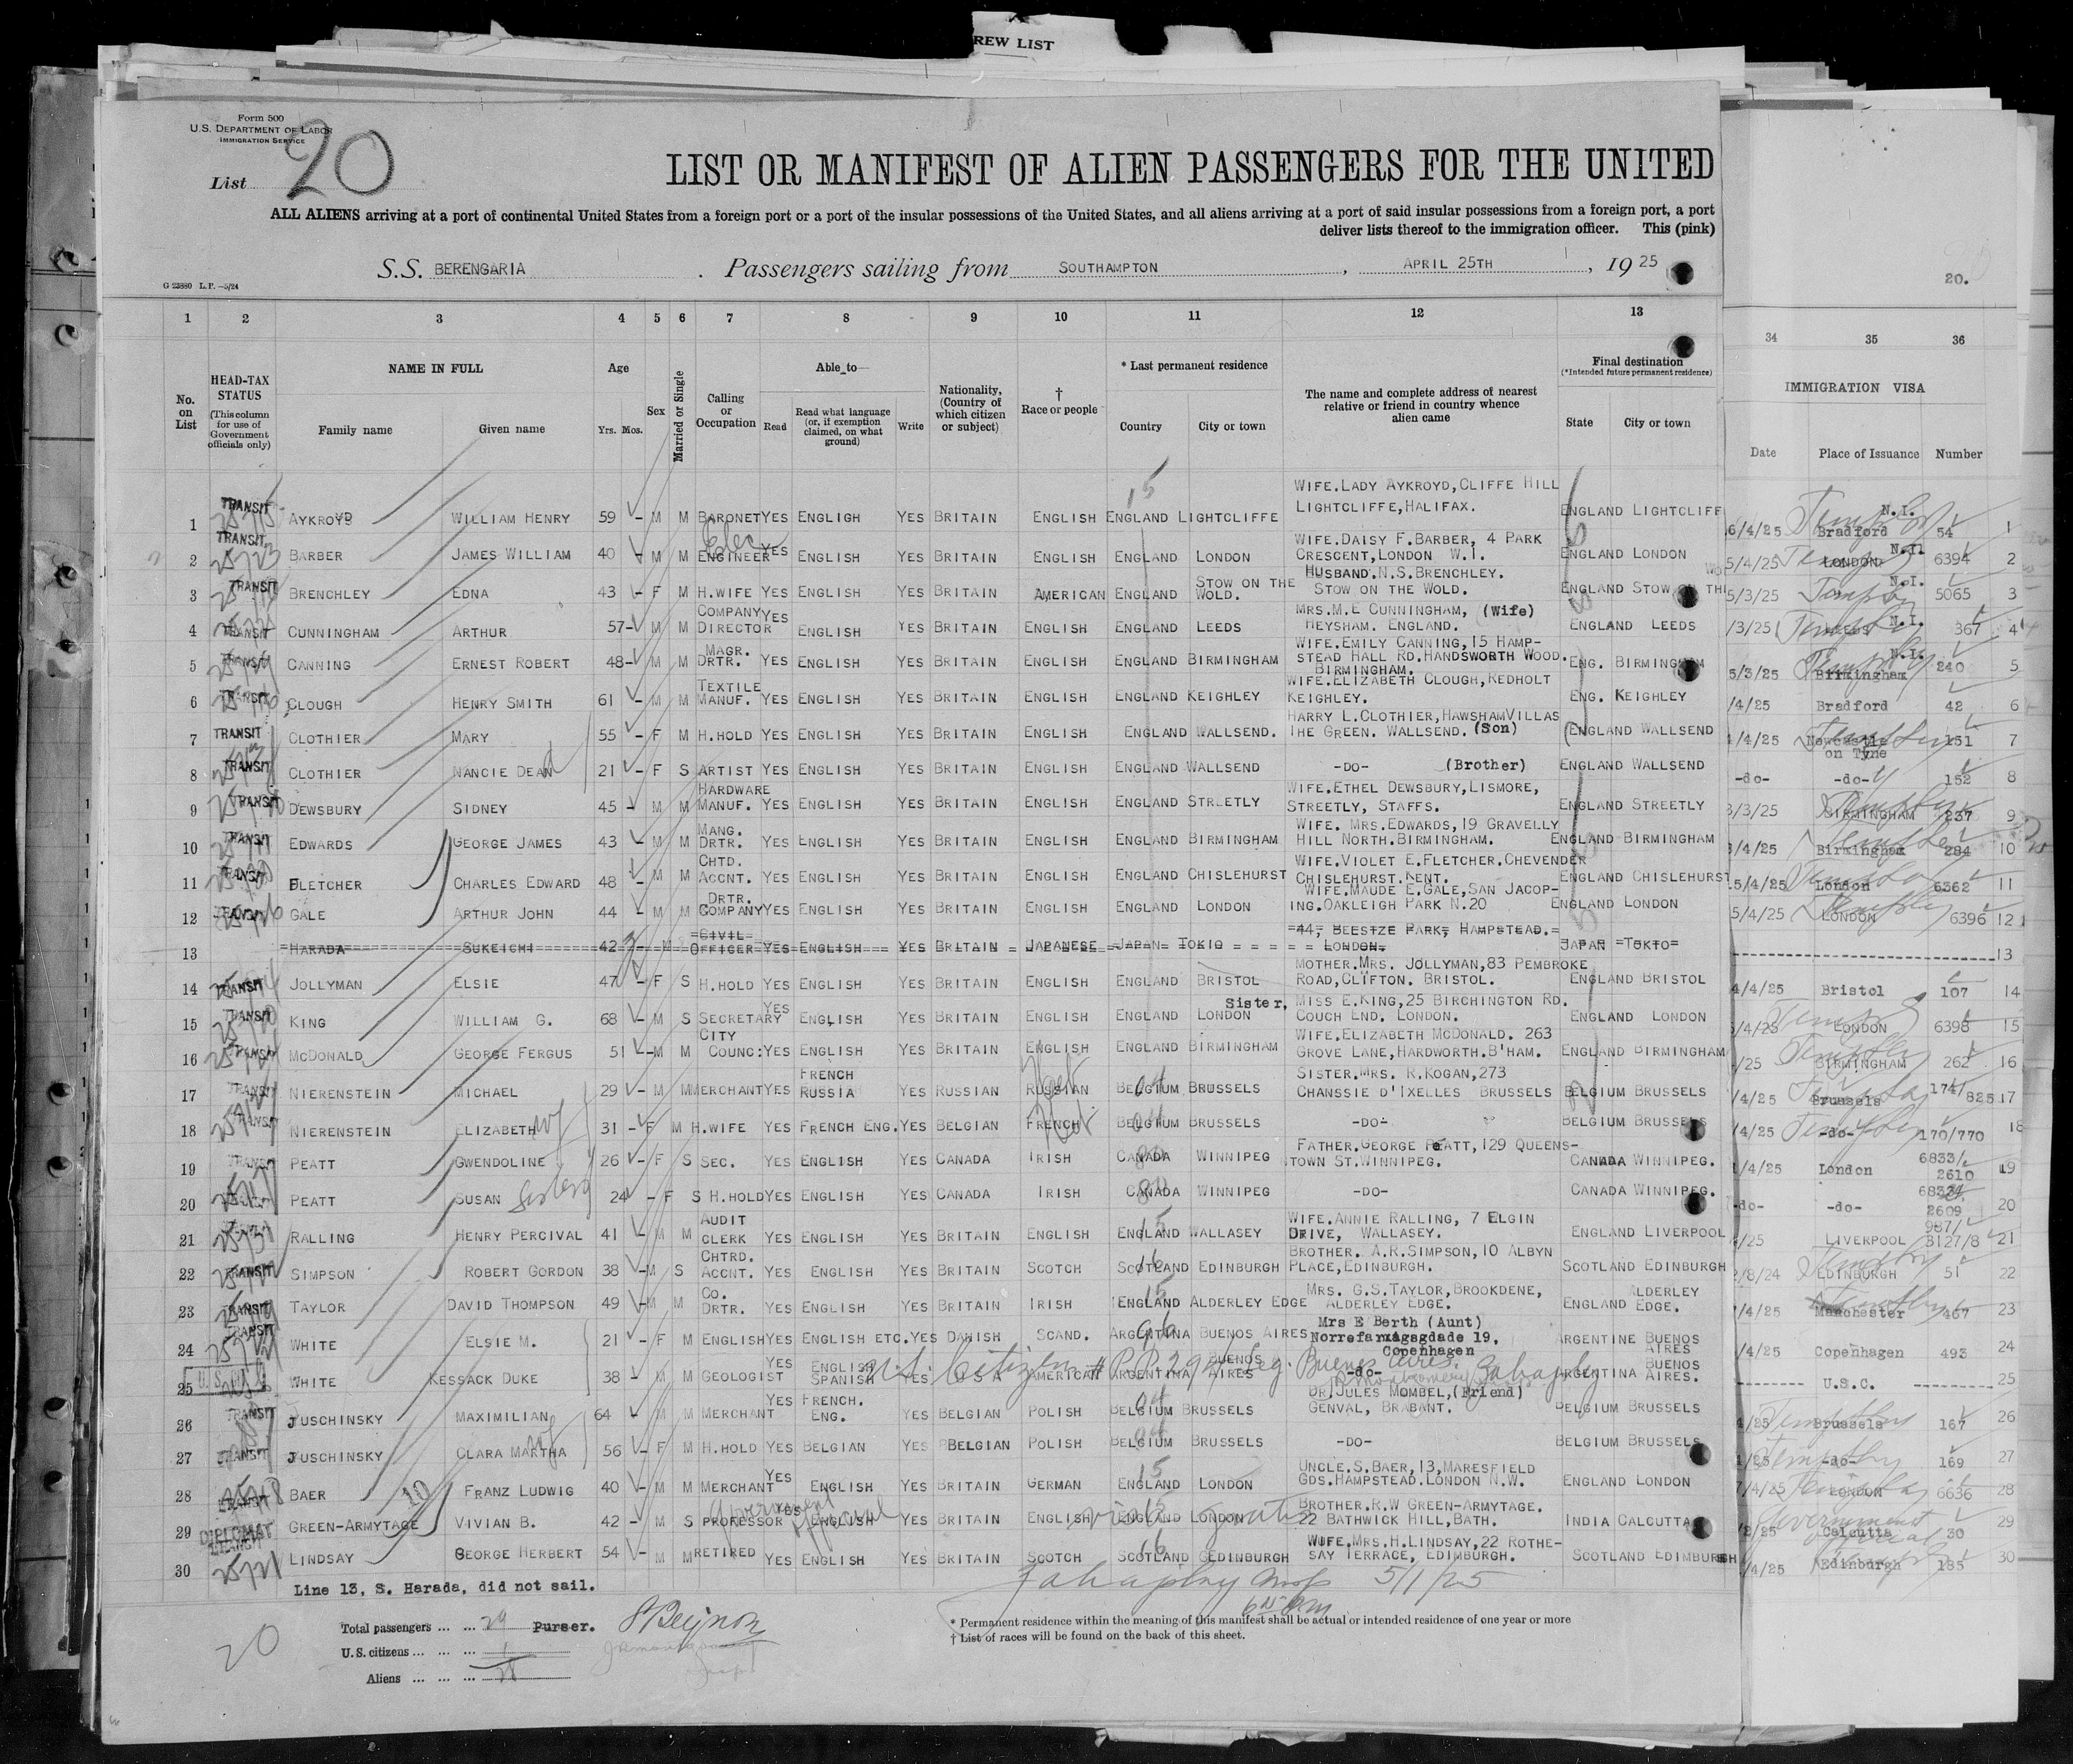 REW LIST
Form 500
U.S. DEPARTMENT OF LABOR
IMMIGRATION SERVICE
List 20
LIST OR MANIFEST OF ALIEN PASSENGERS FOR THE UNITED
ALL ALIENS arriving at a port of continental United States from a foreign port or a port of the insular possessions of the United States, and all aliens arriving at a port of said insular possessions from a foreign port, a port
deliver lists thereof to the immigration officer. This (pink)
S.S. BERENGARIA. Passengers sailing from SOUTHAMPTON, APRIL 25TH, 1925
G 23880 L.P.—5/24
20.
1 2 3 4 5 6 7 8 9 10 11 12 13 34 35 36
No. on List
HEAD-TAX STATUS (This column for use of Government officials only)
NAME IN FULL
Family name Given name
Age
Yrs. Mos.
Sex
Married or Single
Calling or Occupation
Able to—
Read Read what language (or, if exemption claimed, on what ground) Write
Nationality, (Country of which citizen or subject)
† Race or people
* Last permanent residence
Country City or town
The name and complete address of nearest relative or friend in country whence alien came
Final destination
(*Intended future permanent residence)
State City or town
IMMIGRATION VISA
Date Place of Issuance Number
1 TRANSIT AYKROYD WILLIAM HENRY 59 M M BARONET YES ENGLIGH YES BRITAIN ENGLISH ENGLAND LIGHTCLIFFE WIFE.LADY AYKROYD,CLIFFE HILL LIGHTCLIFFE,HALIFAX. ENGLAND LIGHTCLIFF 6/4/25 Bradford N.I. 54 1
2 TRANSIT BARBER JAMES WILLIAM 40 M M Elec ENGINEER YES ENGLISH YES BRITAIN ENGLISH ENGLAND LONDON WIFE.DAISY F.BARBER, 4 PARK CRESCENT,LONDON W.I. ENGLAND LONDON 5/4/25 LONDON N.I. 6394 2
3 TRANSIT BRENCHLEY EDNA 43 F M H.WIFE YES ENGLISH YES BRITAIN AMERICAN ENGLAND STOW ON THE WOLD. HUSBAND.N.S.BRENCHLEY. STOW ON THE WOLD. ENGLAND STOW ON THE 5/3/25 N.I. 5065 3
4 TRANSIT CUNNINGHAM ARTHUR 57 M M COMPANY DIRECTOR YES ENGLISH YES BRITAIN ENGLISH ENGLAND LEEDS MRS.M.E CUNNINGHAM, (Wife) HEYSHAM. ENGLAND. ENGLAND LEEDS /3/25 N.I. 367 4
5 TRANSIT CANNING ERNEST ROBERT 48 M M MAGR. DRTR. YES ENGLISH YES BRITAIN ENGLISH ENGLAND BIRMINGHAM WIFE.EMILY CANNING,15 HAMP-STEAD HALL RD.HANDSWORTH WOOD. BIRMINGHAM ENG. BIRMINGHAM 5/3/25 Birmingham N.I. 240 5
6 TRANSIT CLOUGH HENRY SMITH 61 M M TEXTILE MANUF. YES ENGLISH YES BRITAIN ENGLISH ENGLAND KEIGHLEY WIFE.ELIZABETH CLOUGH,REDHOLT KEIGHLEY. ENG. KEIGHLEY /4/25 Bradford 42 6
7 TRANSIT CLOTHIER MARY 55 F M H.HOLD YES ENGLISH YES BRITAIN ENGLISH ENGLAND WALLSEND. HARRY L.CLOTHIER,HAWSHAMVILLAS THE GREEN. WALLSEND. (Son) ENGLAND WALLSEND /4/25 Newcastle on Tyne 151 7
8 TRANSIT CLOTHIER NANCIE DEAN 21 F S ARTIST YES ENGLISH YES BRITAIN ENGLISH ENGLAND WALLSEND -DO- (Brother) ENGLAND WALLSEND -do- -do- 152 8
9 TRANSIT DEWSBURY SIDNEY 45 M M HARDWARE MANUF. YES ENGLISH YES BRITAIN ENGLISH ENGLAND STREETLY WIFE.ETHEL DEWSBURY,LISMORE, STREETLY, STAFFS. ENGLAND STREETLY 3/3/25 BIRMINGHAM 237 9
10 TRANSIT EDWARDS GEORGE JAMES 43 M M MANG. DRTR. YES ENGLISH YES BRITAIN ENGLISH ENGLAND BIRMINGHAM WIFE. MRS.EDWARDS,19 GRAVELLY HILL NORTH.BIRMINGHAM. ENGLAND BIRMINGHAM /4/25 Birmingham 284 10
11 TRANSIT FLETCHER CHARLES EDWARD 48 M M CHTD. ACCNT. YES ENGLISH YES BRITAIN ENGLISH ENGLAND CHISLEHURST WIFE.VIOLET E.FLETCHER,CHEVENDER CHISLEHURST.KENT. ENGLAND CHISLEHURST 5/4/25 London 6362 11
12 TRANSIT GALE ARTHUR JOHN 44 M M DRTR. COMPANY YES ENGLISH YES BRITAIN ENGLISH ENGLAND LONDON WIFE.MAUDE E.GALE,SAN JACOP-ING.OAKLEIGH PARK N.20 ENGLAND LONDON 5/4/25 LONDON 6396 12
13 HARADA SUKEICHI 42 M CIVIL OFFICER YES ENGLISH YES BRITAIN JAPANESE JAPAN TOKIO 44, BEESIZE PARK, HAMPSTEAD. LONDON. JAPAN TOKIO 13
14 TRANSIT JOLLYMAN ELSIE 47 F S H.HOLD YES ENGLISH YES BRITAIN ENGLISH ENGLAND BRISTOL MOTHER.MRS. JOLLYMAN,83 PEMBROKE ROAD,CLIFTON. BRISTOL. ENGLAND BRISTOL 4/4/25 Bristol 107 14
15 TRANSIT KING WILLIAM G. 68 M S SECRETARY YES ENGLISH YES BRITAIN ENGLISH ENGLAND LONDON Sister, MISS E.KING,25 BIRCHINGTON RD. COUCH END. LONDON. ENGLAND LONDON /4/25 LONDON 6398 15
16 TRANSIT MCDONALD GEORGE FERGUS 51 M M CITY COUNC: YES ENGLISH YES BRITAIN ENGLISH ENGLAND BIRMINGHAM WIFE.ELIZABETH MCDONALD. 263 GROVE LANE,HARDWORTH.B'HAM. ENGLAND BIRMINGHAM /25 BIRMINGHAM 262 16
17 TRANSIT NIERENSTEIN MICHAEL 29 M M MERCHANT YES FRENCH RUSSIA YES RUSSIAN RUSSIAN BELGIUM BRUSSELS SISTER.MRS. R.KOGAN,273 CHANSSIE D'IXELLES BRUSSELS BELGIUM BRUSSELS /4/25 Brussels 174/825 17
18 TRANSIT NIERENSTEIN ELIZABETH wf 31 F M H.WIFE YES FRENCH ENG. YES BELGIAN FRENCH BELGIUM BRUSSELS -DO- BELGIUM BRUSSELS /4/25 -do- 170/770 18
19 PEATT GWENDOLINE 26 F S SEC. YES ENGLISH YES CANADA IRISH CANADA WINNIPEG FATHER.GEORGE PEATT,129 QUEENS-TOWN ST.WINNIPEG. CANADA WINNIPEG. /4/25 London 6833/2610 19
20 PEATT SUSAN Sisters 24 F S H.HOLD YES ENGLISH YES CANADA IRISH CANADA WINNIPEG -DO- CANADA WINNIPEG. -do- -do- 2609 20
21 RALLING HENRY PERCIVAL 41 M M AUDIT CLERK YES ENGLISH YES BRITAIN ENGLISH ENGLAND WALLASEY WIFE.ANNIE RALLING, 7 ELGIN DRIVE, WALLASEY. ENGLAND LIVERPOOL /25 LIVERPOOL 987/3127/8 21
22 TRANSIT SIMPSON ROBERT GORDON 38 M S CHTRD. ACCNT. YES ENGLISH YES BRITAIN SCOTCH SCOTLAND EDINBURGH BROTHER. A.R.SIMPSON,10 ALBYN PLACE,EDINBURGH. SCOTLAND EDINBURGH 2/8/24 EDINBURGH 51 22
23 TRANSIT TAYLOR DAVID THOMPSON 49 M M CO. DRTR. YES ENGLISH YES BRITAIN IRISH ENGLAND ALDERLEY EDGE MRS. G.S.TAYLOR,BROOKDENE, ALDERLEY EDGE. ENGLAND ALDERLEY EDGE. /4/25 Manchester 467 23
24 TRANSIT WHITE ELSIE M. 21 F M ENGLISH YES ENGLISH ETC. YES DANISH SCAND. ARGENTINA BUENOS AIRES Mrs E Berth (Aunt) Norrefarimagsgade 19, Copenhagen ARGENTINE BUENOS AIRES /4/25 Copenhagen 493 24
25 WHITE KESSACK DUKE 38 M M GEOLOGIST YES ENGLISH SPANISH YES U.S.A AMERICAN ARGENTINA BUENOS AIRES -do- ARGENTINA BUENOS AIRES. U.S.C. 25
U.S. Citizen # P.P. Buenos Aires.
26 TRANSIT JUSCHINSKY MAXIMILIAN 64 M M MERCHANT YES FRENCH. ENG. YES BELGIAN POLISH BELGIUM BRUSSELS DR.JULES MOMBEL,(Friend) GENVAL, BRABANT. BELGIUM BRUSSELS 4/25 Brussels 167 26
27 TRANSIT JUSCHINSKY CLARA MARTHA wf 56 F M H.HOLD YES BELGIAN YES BELGIAN POLISH BELGIUM BRUSSELS -DO- BELGIUM BRUSSELS /25 -do- 169 27
28 TRANSIT BAER 10 FRANZ LUDWIG 40 M M MERCHANT YES ENGLISH YES BRITAIN GERMAN ENGLAND LONDON UNCLE.S.BAER,13,MARESFIELD GDS.HAMPSTEAD.LONDON N.W. ENGLAND LONDON 7/4/25 LONDON 6636 28
29 DIPLOMAT GREEN-ARMYTAGE VIVIAN B. 42 M S PROFESSOR Government Official YES ENGLISH YES BRITAIN ENGLISH ENGLAND LONDON BROTHER.R.W GREEN-ARMYTAGE. 22 BATHWICK HILL,BATH. INDIA CALCUTTA /2/25 Calcutta 30 Government official 29
30 TRANSIT LINDSAY GEORGE HERBERT 54 M M RETIRED YES ENGLISH YES BRITAIN SCOTCH SCOTLAND EDINBURGH WIFE.MRS.H.LINDSAY,22 ROTHE-SAY TERRACE, EDIMBURGH. SCOTLAND EDIMBURGH /4/25 Edinburgh 185 30
Line 13, S. Harada, did not sail.
5/1/25
Total passengers ... ... 29 Purser.
U.S. citizens ... ... ... 1
Aliens ... ... ... 28
20
* Permanent residence within the meaning of this manifest shall be actual or intended residence of one year or more
† List of races will be found on the back of this sheet.